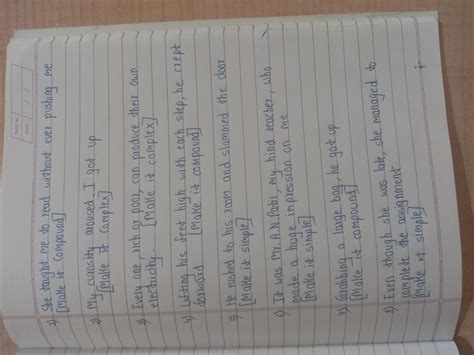 1) She taught me to read without ever pushing me
[Make it Compound]
2) My curiosity aroused, I got up
[Make it Complex]
3) Every one, rich or poor, can produce their own
electricity. [Make it complex]
4) Lifting his feet high with each step, he crept
forward [Make it compound]
5) He rushed to his room and slammed the door
[Make it simple]
6) It was Mr. A.N. Patil, my kind teacher, who
made a huge impression on me
[Make it simple]
7) Grabbing a large bag, he got up.
[Make it compound]
8) Even though she was late, she managed to
complete the assignment
[Make it simple]